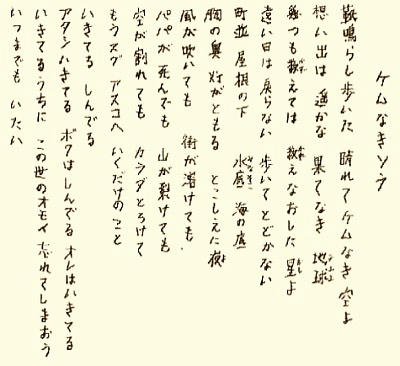 ケムなきソラ
靴鳴らし歩いた 晴れてケムなき空よ
想い出は 遥かな 果てなき 地球
幾つも数えては 数えなおした 星よ
遠い日は戻らない 歩いてとどかない
町並 屋根の下 水底 海の底
胸の奥 灯がともる とこしえに夜
風が吹いても 街が溶けても
パパが死んでも 山が裂けても
空が割れても カラダとろけて
もうスグ アスコへ いくだけのこと
いきてる しんでる
アタシハいきてる ボクはしんでる オレはいきてる
いきてるうちに この世のオモイ 忘れてしまおう
いつまでも いたい